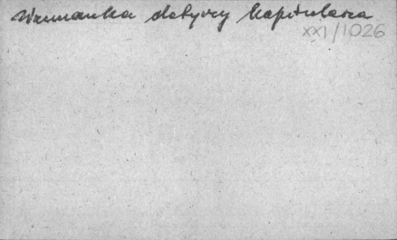 Wzmianka dotyczy kapitularza
XXI/1026